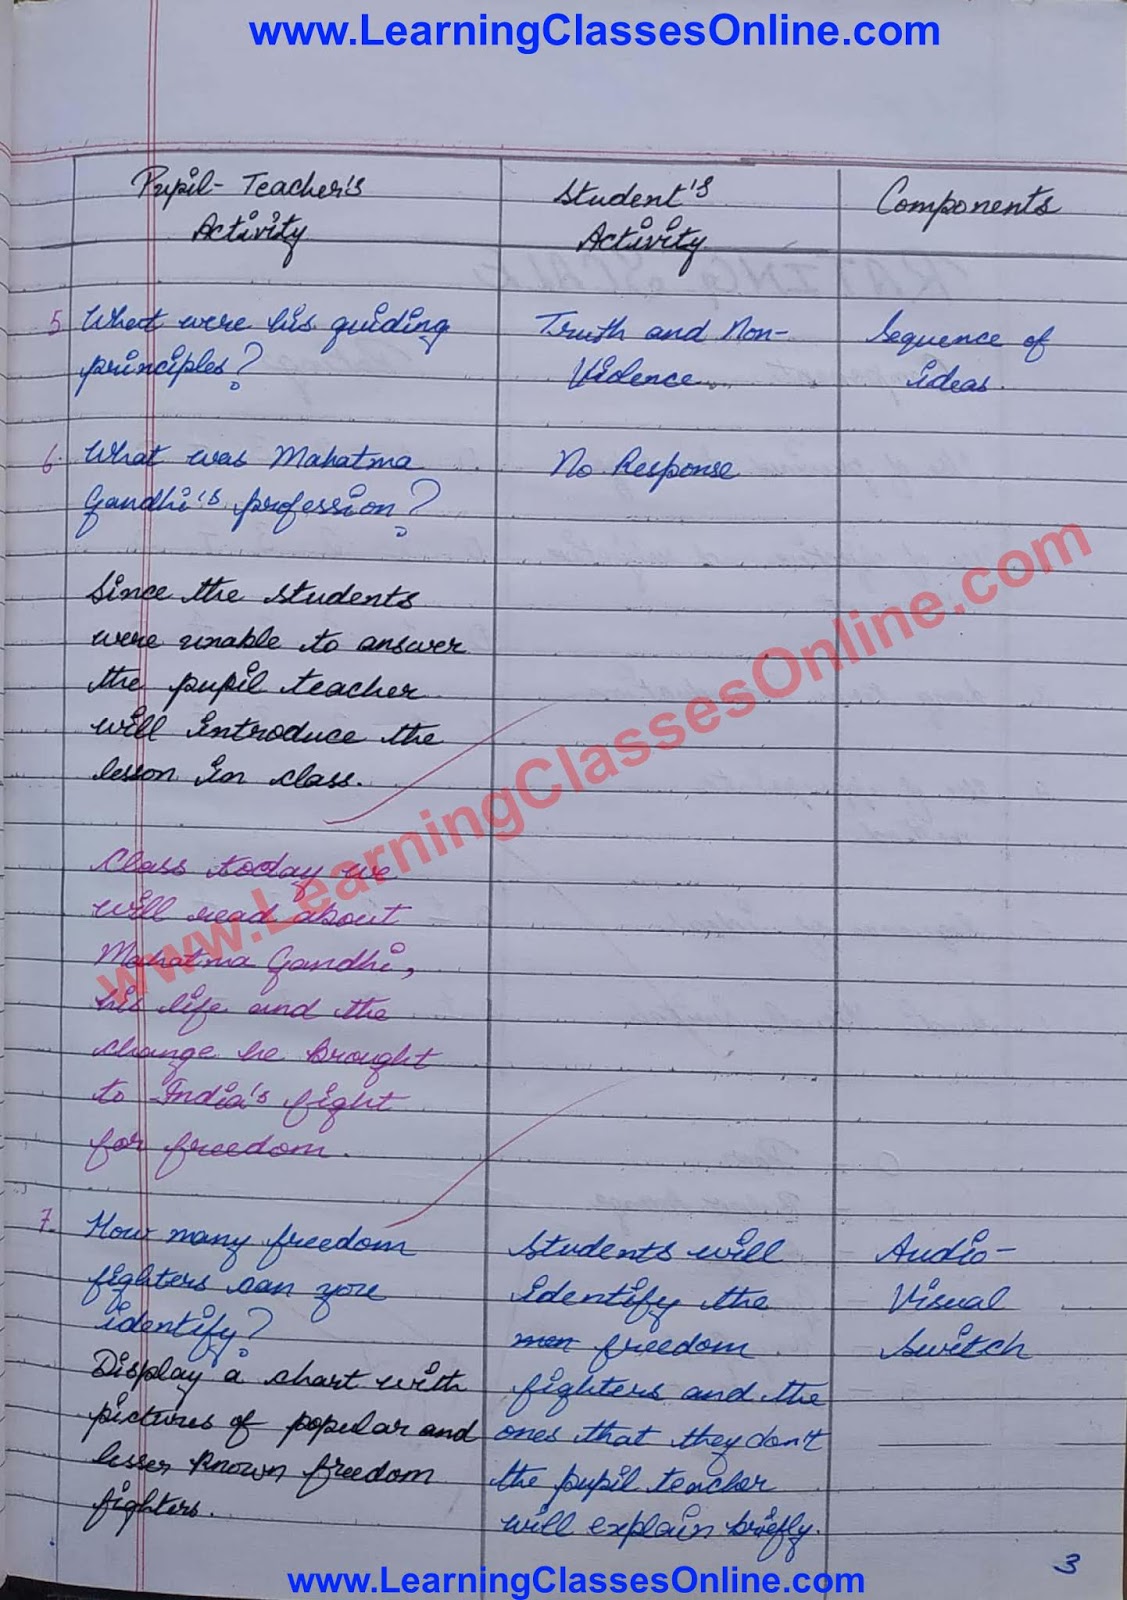 www.LearningClassesOnline.com
Pupil-Teacher's
Activity
Student's
Activity
Components
5 What were his guiding
principles?
Truth and Non-
Violence.
Sequence of
ideas.
6. What was Mahatma
Gandhi's profession?
No Response
Since the students
were unable to answer
the pupil teacher
will introduce the
lesson in class.
www.LearningClassesOnline.com
Class today we
will read about
Mahatma Gandhi,
his life and the
change he brought
to India's fight
for freedom.
7. How many freedom
fighters can you
identify?
Display a chart with
pictures of popular and
lesser known freedom
fighters.
Students will
identify the
men freedom
fighters and the
ones that they don't
the pupil teacher
will explain briefly.
Audio-
Visual
Switch
3
www.LearningClassesOnline.com